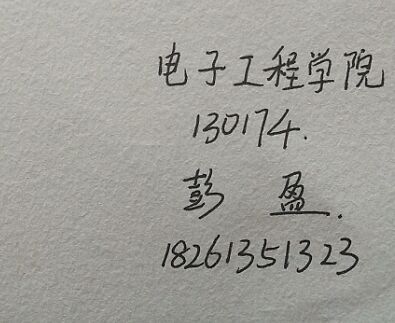 电子工程学院
130174.
彭 盈.
18261351323